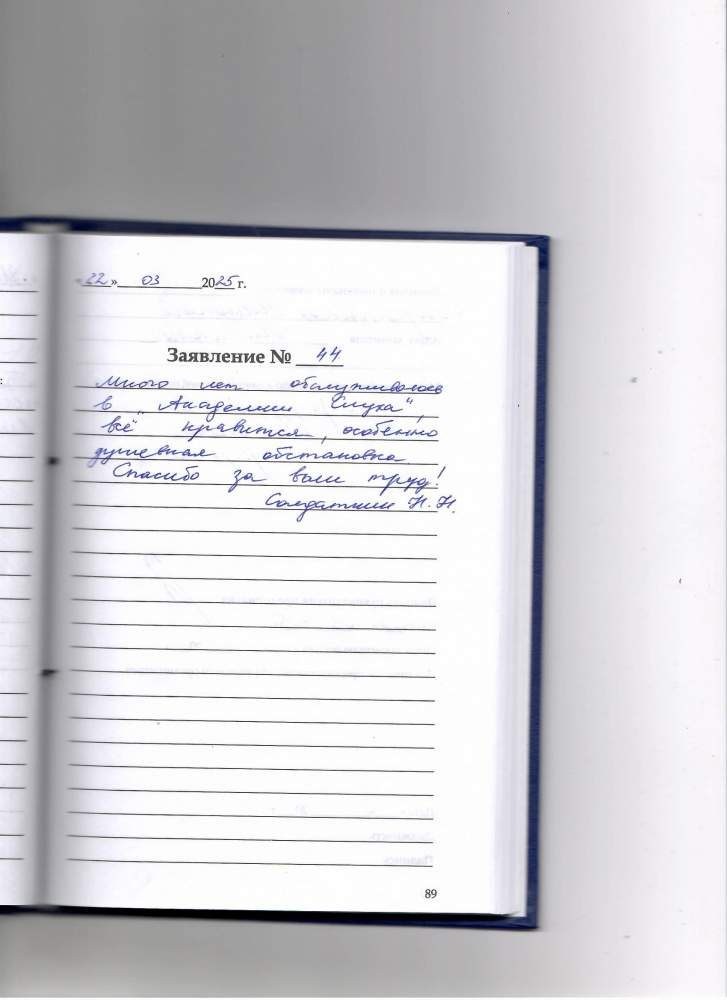 «22» 03 2025 г.
Заявление № 44
Много лет обслуживаюсь
в „Академии Слуха“,
всё нравится, особенно
душевная обстановка
Спасибо за ваш труд!
Солдаткин Н.Н.
89